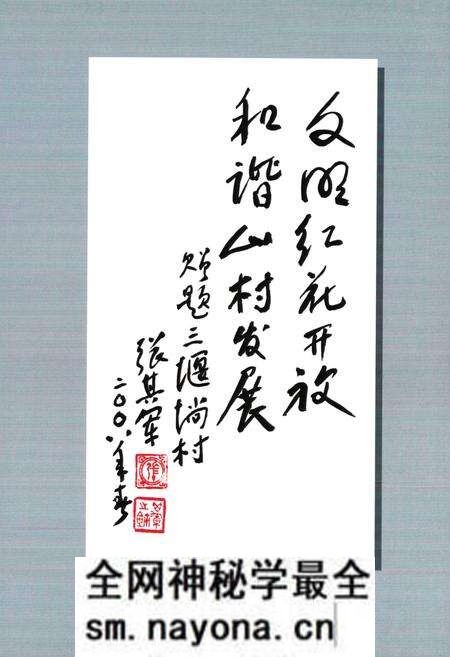 文明红花开放
和谐山村发展
赠题三堰埫村
张其军
二〇〇八年春
全网神秘学最全
sm.nayona.cn